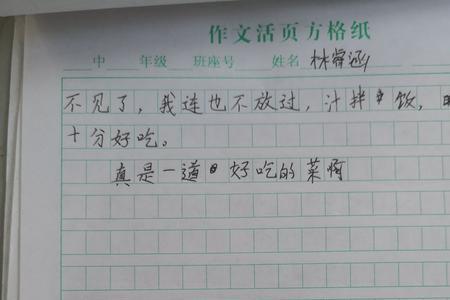 作文活页方格纸
中 年级 班座号 姓名 林舜涵
不见了，我连也不放过，汁拌饭，
十分好吃。
真是一道好吃的菜啊